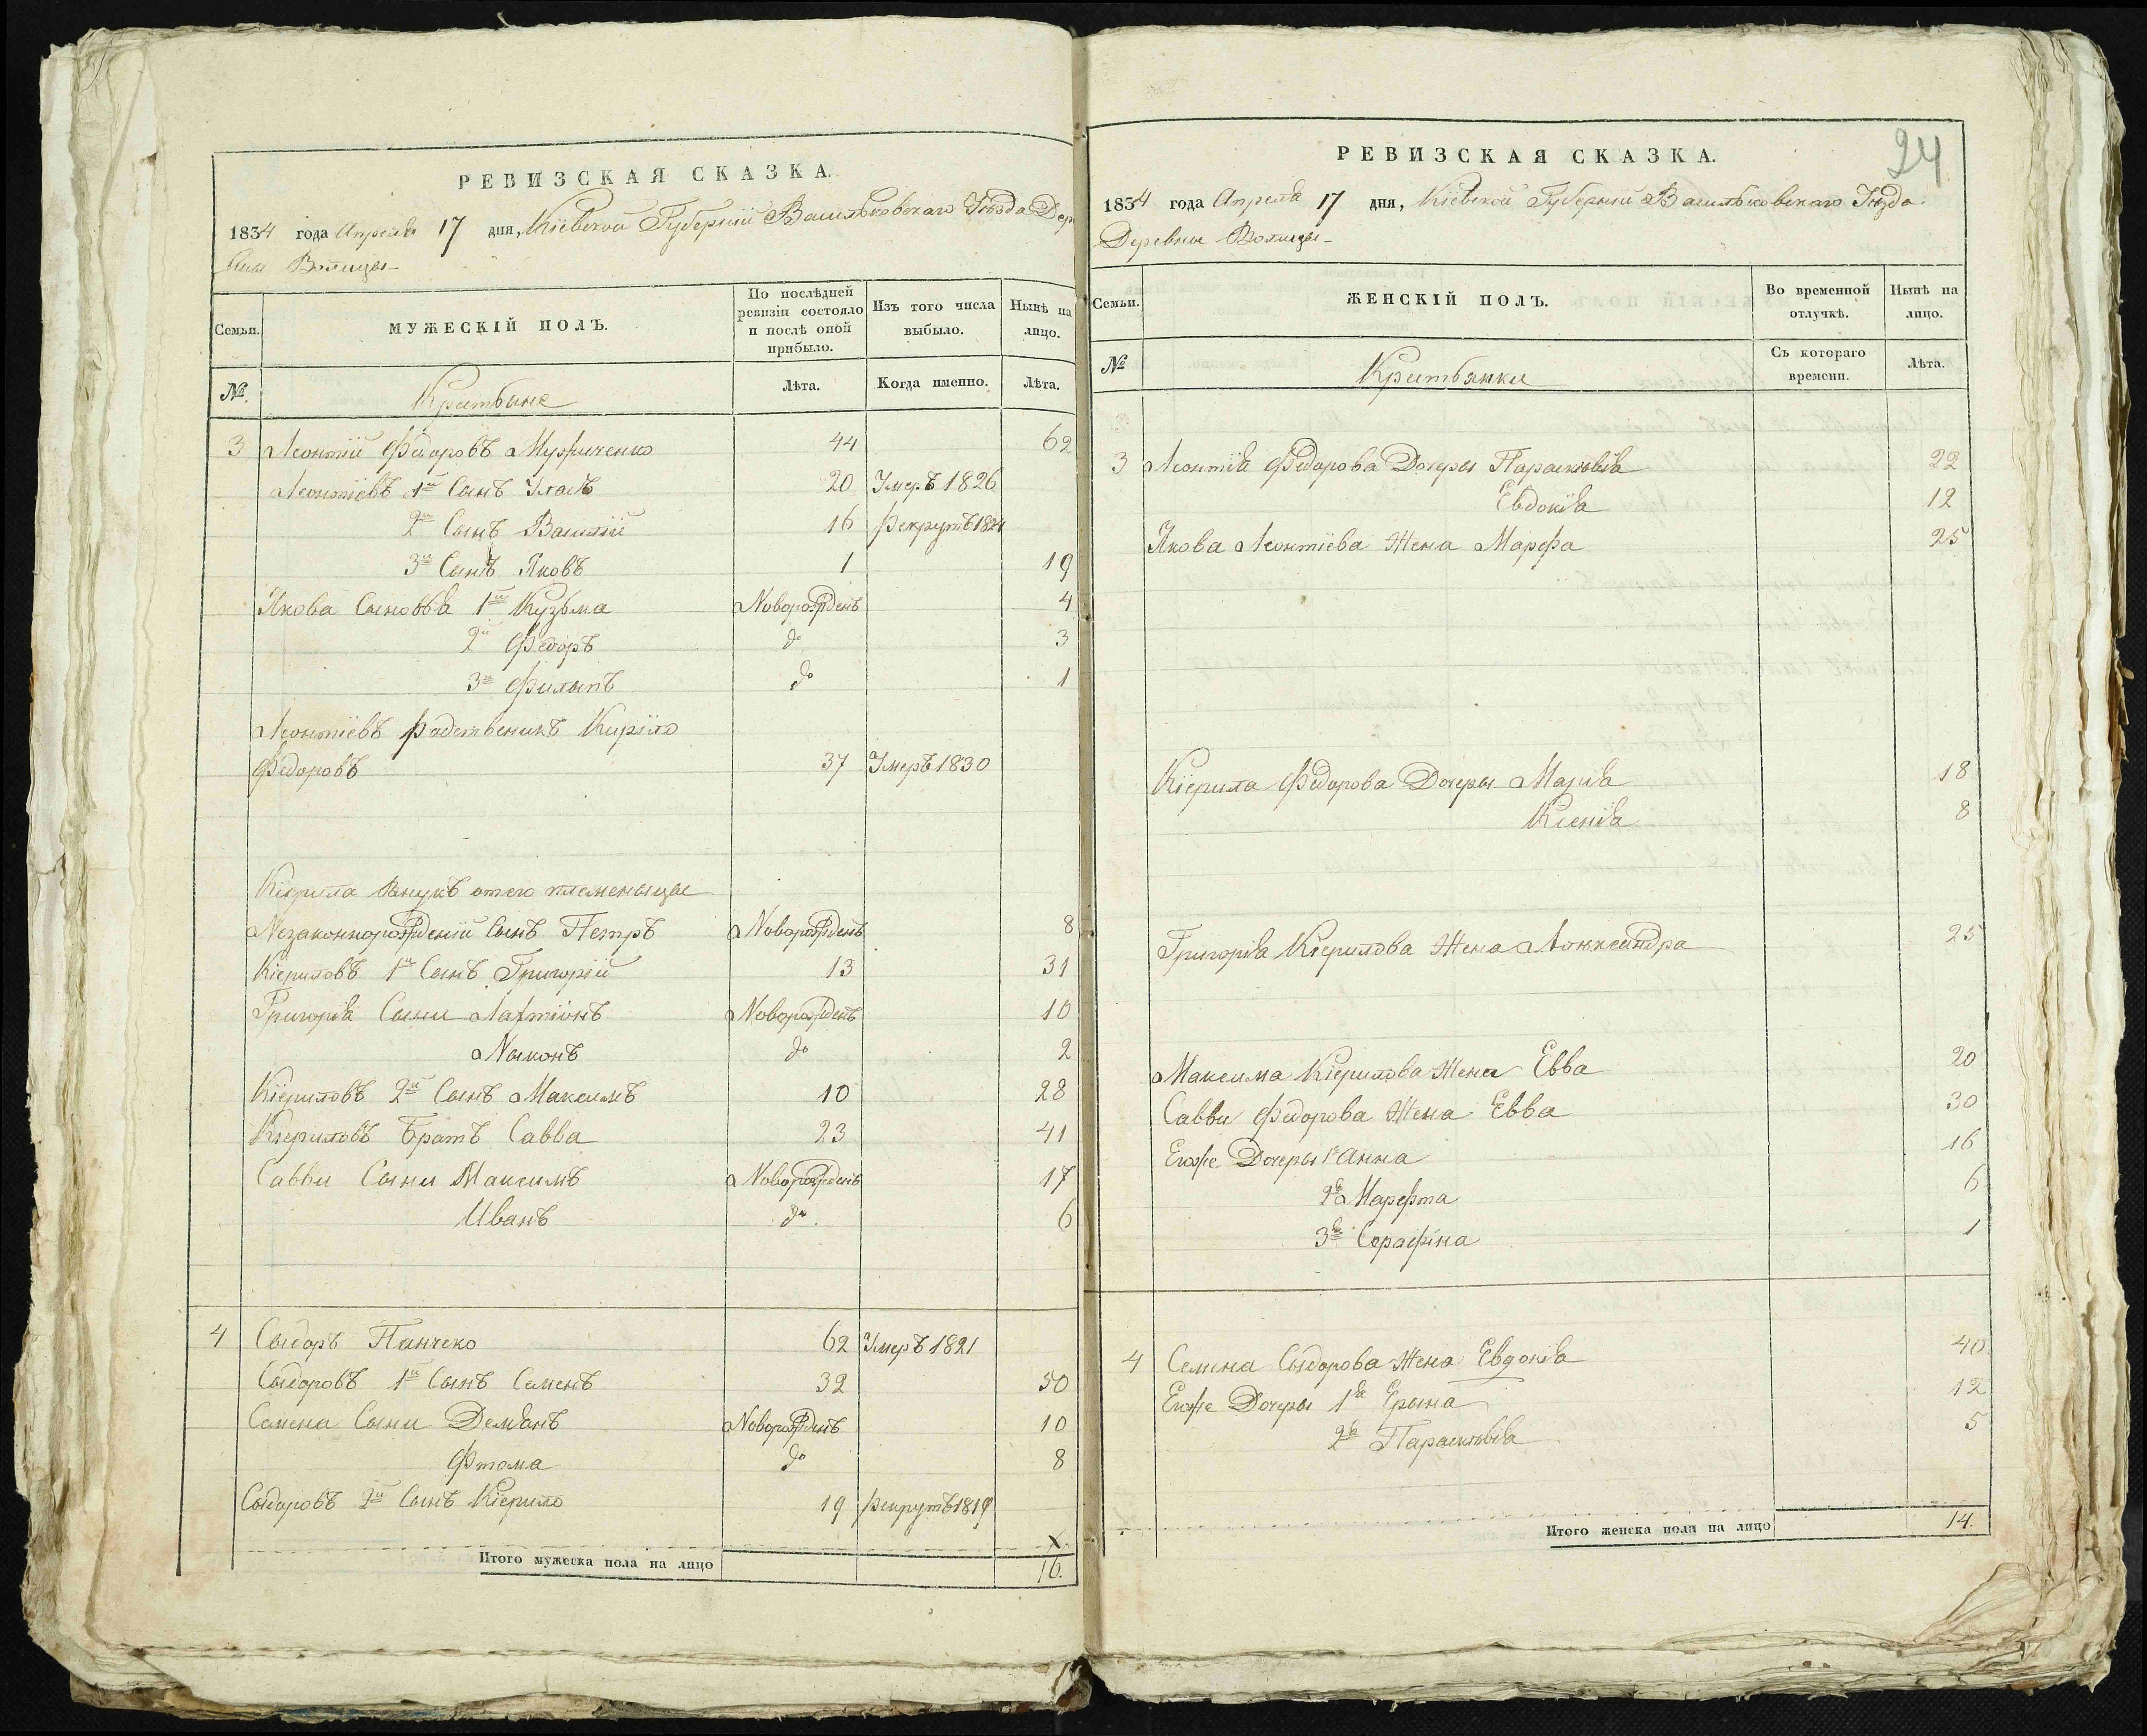 РЕВИЗСКАЯ СКАЗКА.
1834 года Апреля 17 дня, Кіевской Губерніи Васильковскаго Уѣзда Дер
вни Волицы
Семьи. МУЖЕСКІЙ ПОЛЪ. По послѣдней ревизіи состояло и послѣ оной прибыло. Изъ того числа выбыло. Нынѣ на лицо.
№. Лѣта. Когда именно. Лѣта.
3 Леонтій Федоровъ 44 62
Леонтіевъ 1й Сынъ Уласъ 20 Умеръ 1826
2й Сынъ Василій 16 рекрутъ 1824
3й Сынъ Яковъ 1 19
Якова Сыновья 1й Кузьма Новорожденъ 4
2й Федоръ до 3
3й Филыпъ до 1
Леонтіевъ родственикъ Кирило
Федоровъ 37 Умеръ 1830
Кіерила Внукъ отего племеныцы
Незаконнорожденій Сынъ Петръ Новорожденъ 8
Кіериловъ 1й Сынъ Григорій 13 31
Григорія Сыни Лактіонъ Новорожденъ 10
Ныконъ до 2
Кіериловъ 2й Сынъ Максимъ 10 28
Кіериловъ Братъ Савва 23 41
Савви Сыни Максимъ Новорожденъ 17
Иванъ до 6
4 Сыдоръ Панчеко 62 Умеръ 1821
Сыдоровъ 1й Сынъ Семенъ 32 50
Семена Сыни Демянъ Новорожденъ 10
Фтома до 8
Сыдоровъ 2й Сынъ Кіерило 19 рекрутъ 1819
х
Итого мужеска пола на лицо 16.
24
РЕВИЗСКАЯ СКАЗКА.
1834 года Апреля 17 дня, Кіевской Губерніи Васильковскаго Уѣзда
Деревни Волицы
Семьи. ЖЕНСКІЙ ПОЛЪ. Во временной отлучкѣ. Нынѣ на лицо.
№ Съ котораго времени. Лѣта.
3 Леонтія Федорова Дочеры Параскевія 22
Евдокія 12
Якова Леонтіева Жена Марфа 25
Кіерила Федорова Дочеры Марія 18
Ксенія 8
Григорія Кіерилова Жена 25
Максима Кіерилова Жена Евва 20
Савви Федорова Жена Евва 30
Егоже Дочеры 1я Анна 16
2я Марфта 6
3я Серафіна 1
4 Семена Сыдорова Жена Евдокія 40
Егоже Дочеры 1я Ерына 12
2я Параскевія 5
Итого женска пола на лицо 14.